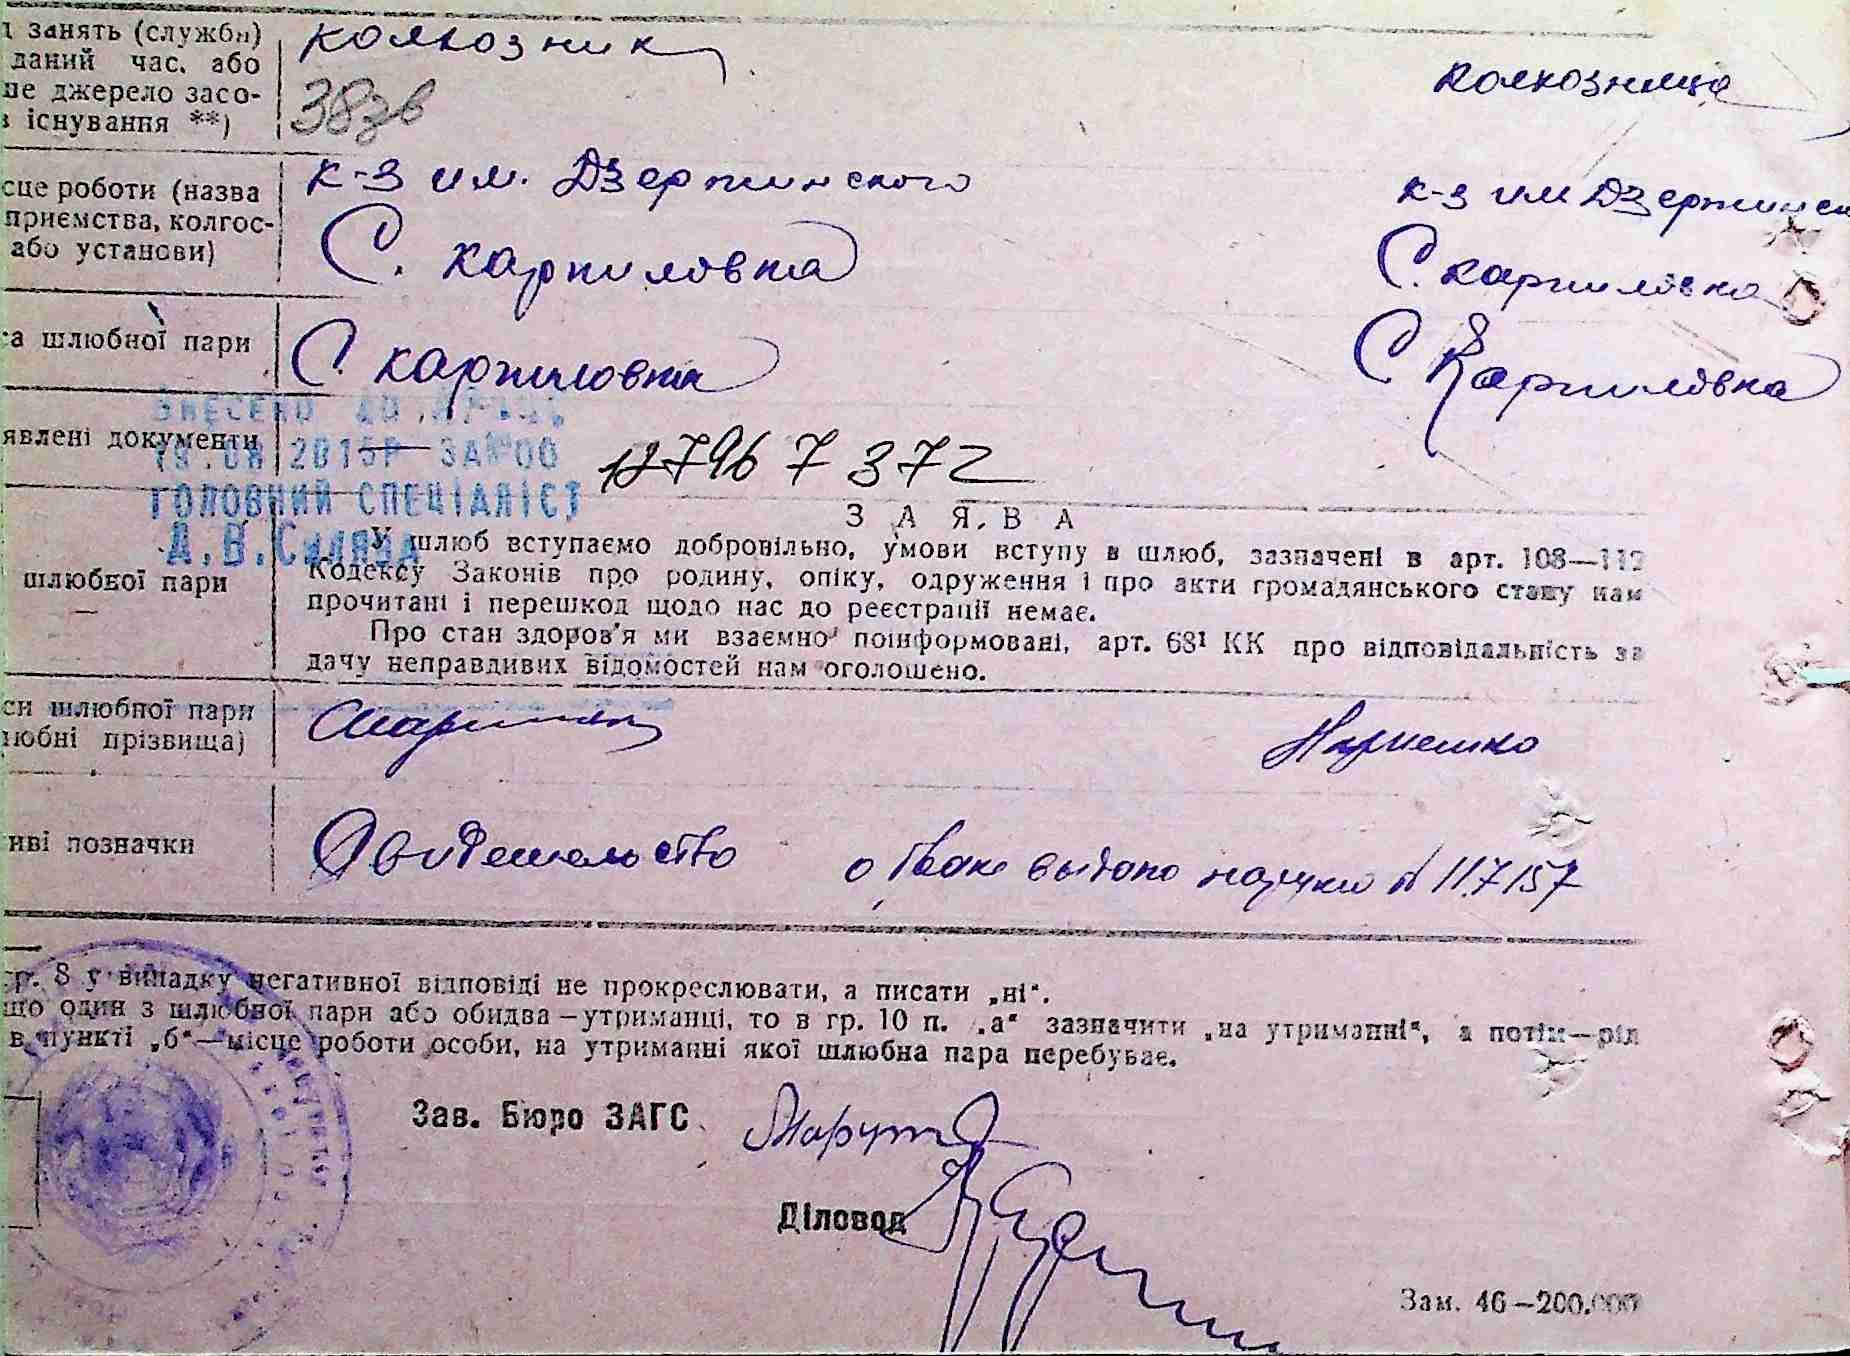 занять (служби)
даний час, або
не джерело засо-
в існування **)
колхозник
колхозница
38зв
сце роботи (назва
приємства, колгос-
або установи)
к-з им. Дзержинского
к-з им Дзержинск
С. Карпиловка
С. Карпиловка
са шлюбної пари
С. Карпиловка
С Карпиловка
явлені документи
ВНЕСЕНО ДО
19.08 2015Р ЗА №00
ГОЛОВНИЙ СПЕЦІАЛІСТ
127967372
ЗАЯВА
шлюбної пари
У шлюб вступаємо добровільно, умови вступу в шлюб, зазначені в арт. 108—112
Кодексу Законів про родину, опіку, одруження і про акти громадянського стану нам
прочитані і перешкод щодо нас до реєстрації немає.
Про стан здоров'я ми взаємно поінформовані, арт. 68¹ КК про відповідальність за
дачу неправдивих відомостей нам оголошено.
си шлюбної пари
любні прізвища)
иві позначки
Свидетельство о браке выдано № 117157
гр. 8 у випадку негативної відповіді не прокреслювати, а писати „ні“.
що один з шлюбної пари або обидва—утриманці, то в гр. 10 п. „а“ зазначити „на утриманні“, а потім—рід
в пункті „б“—місце роботи особи, на утриманні якої шлюбна пара перебуває.
Зав. Бюро ЗАГС
Діловод
Зам. 46—200.000